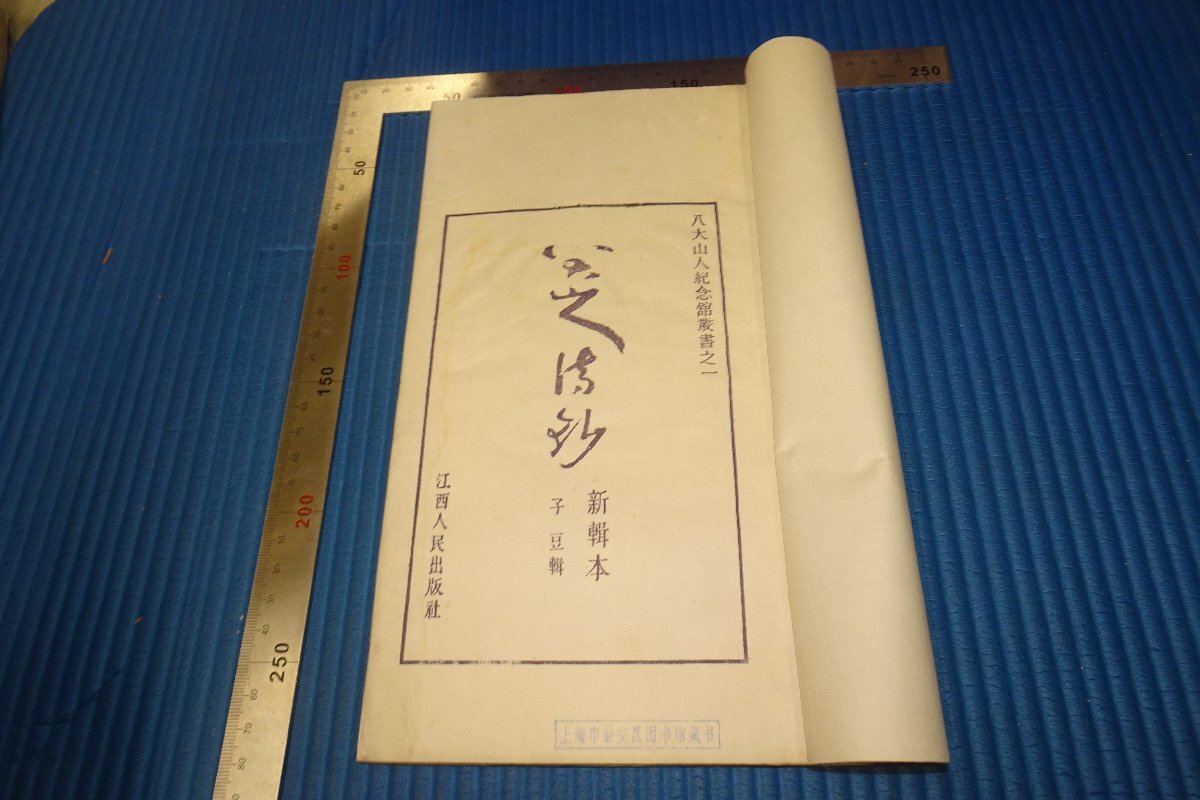 八大山人紀念館叢書之一
八大山人詩鈔
新輯本
子豆輯
江西人民出版社
上海市静安区图书馆藏书
50
100
150
250
50
100
150
200
250